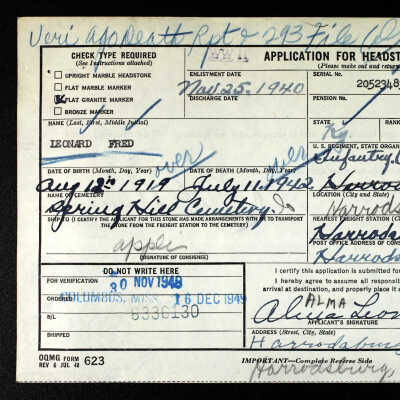 Veri app Death Rpt & 293 File
CHECK TYPE REQUIRED
(See Instructions attached)
UPRIGHT MARBLE HEADSTONE
FLAT MARBLE MARKER
FLAT GRANITE MARKER
BRONZE MARKER
ENLISTMENT DATE
Nov. 25. 1940
DISCHARGE DATE
APPLICATION FOR HEADST
(Please make out and return
SERIAL No.
2052348
PENSION No.
NAME (Last, First, Middle Initial)
LEONARD FRED
STATE
Ky.
U. S. REGIMENT, STATE ORGAN
Infantry,
DATE OF BIRTH (Month, Day, Year)
over
DATE OF DEATH (Month, Day, Year)
over
Aug 12th 1919
July 11. 1942
Harrods
NAME OF CEMETERY
LOCATION (City and State)
Spring Hill Cemetery
Harrods
SHIP TO (I CERTIFY THE APPLICANT FOR THIS STONE HAS MADE ARRANGEMENTS WITH ME TO TRANSPORT
THE STONE FROM THE FREIGHT STATION TO THE CEMETERY)
NEAREST FREIGHT STATION (C
Harrods
apple
POST OFFICE ADDRESS OF CONS
(SIGNATURE OF CONSIGNEE)
Harrods
DO NOT WRITE HERE
FOR VERIFICATION
30 NOV 1948
ORDERED
COLUMBUS, MISS
16 DEC 1949
B/L
8336130
SHIPPED
I certify this application is submitted for
I hereby agree to assume all responsib
arrival at destination, and properly place it a
ALMA
Alma Leon
APPLICANT'S SIGNATURE
ADDRESS (Street, City, State)
Harrodsburg
OQMG FORM 623
REV 6 JUL 48
IMPORTANT—Complete Reverse Side
Harrodsburg,